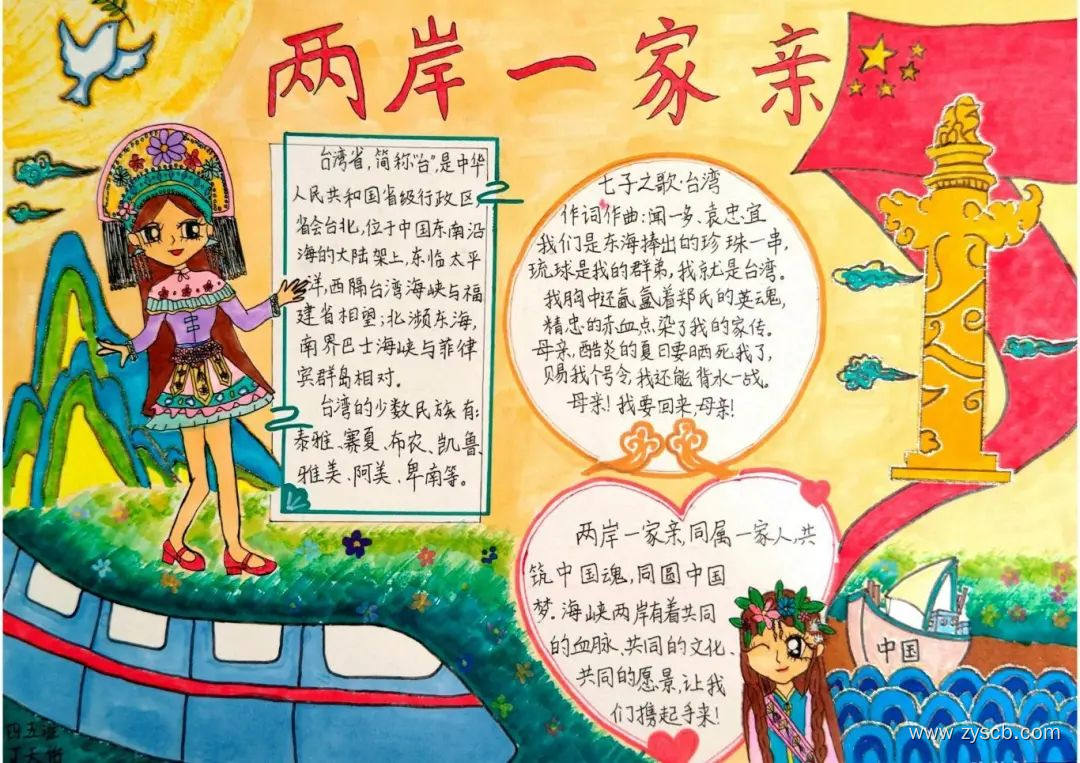 两岸一家亲
台湾省,简称“台”,是中华
人民共和国省级行政区
省会台北,位于中国东南沿
海的大陆架上,东临太平
洋,西隔台湾海峡与福
建省相望;北濒东海,
南界巴士海峡与菲律
宾群岛相对。
台湾的少数民族有:
泰雅、赛夏、布农、凯鲁、
雅美、阿美、卑南等。
七子之歌·台湾
作词作曲:闻一多、袁忠宜
我们是东海捧出的珍珠一串,
琉球是我的群弟,我就是台湾。
我胸中还氤氲着郑氏的英魂,
精忠的赤血点染了我的家传。
母亲,酷炎的夏日要晒死我了,
赐我个号令,我还能背水一战。
母亲!我要回来,母亲!
两岸一家亲,同属一家人,共
筑中国魂,同圆中国
梦。海峡两岸有着共同
的血脉、共同的文化、
共同的愿景,让我
们携起手来!
中国
四五班
www.zyscb.com